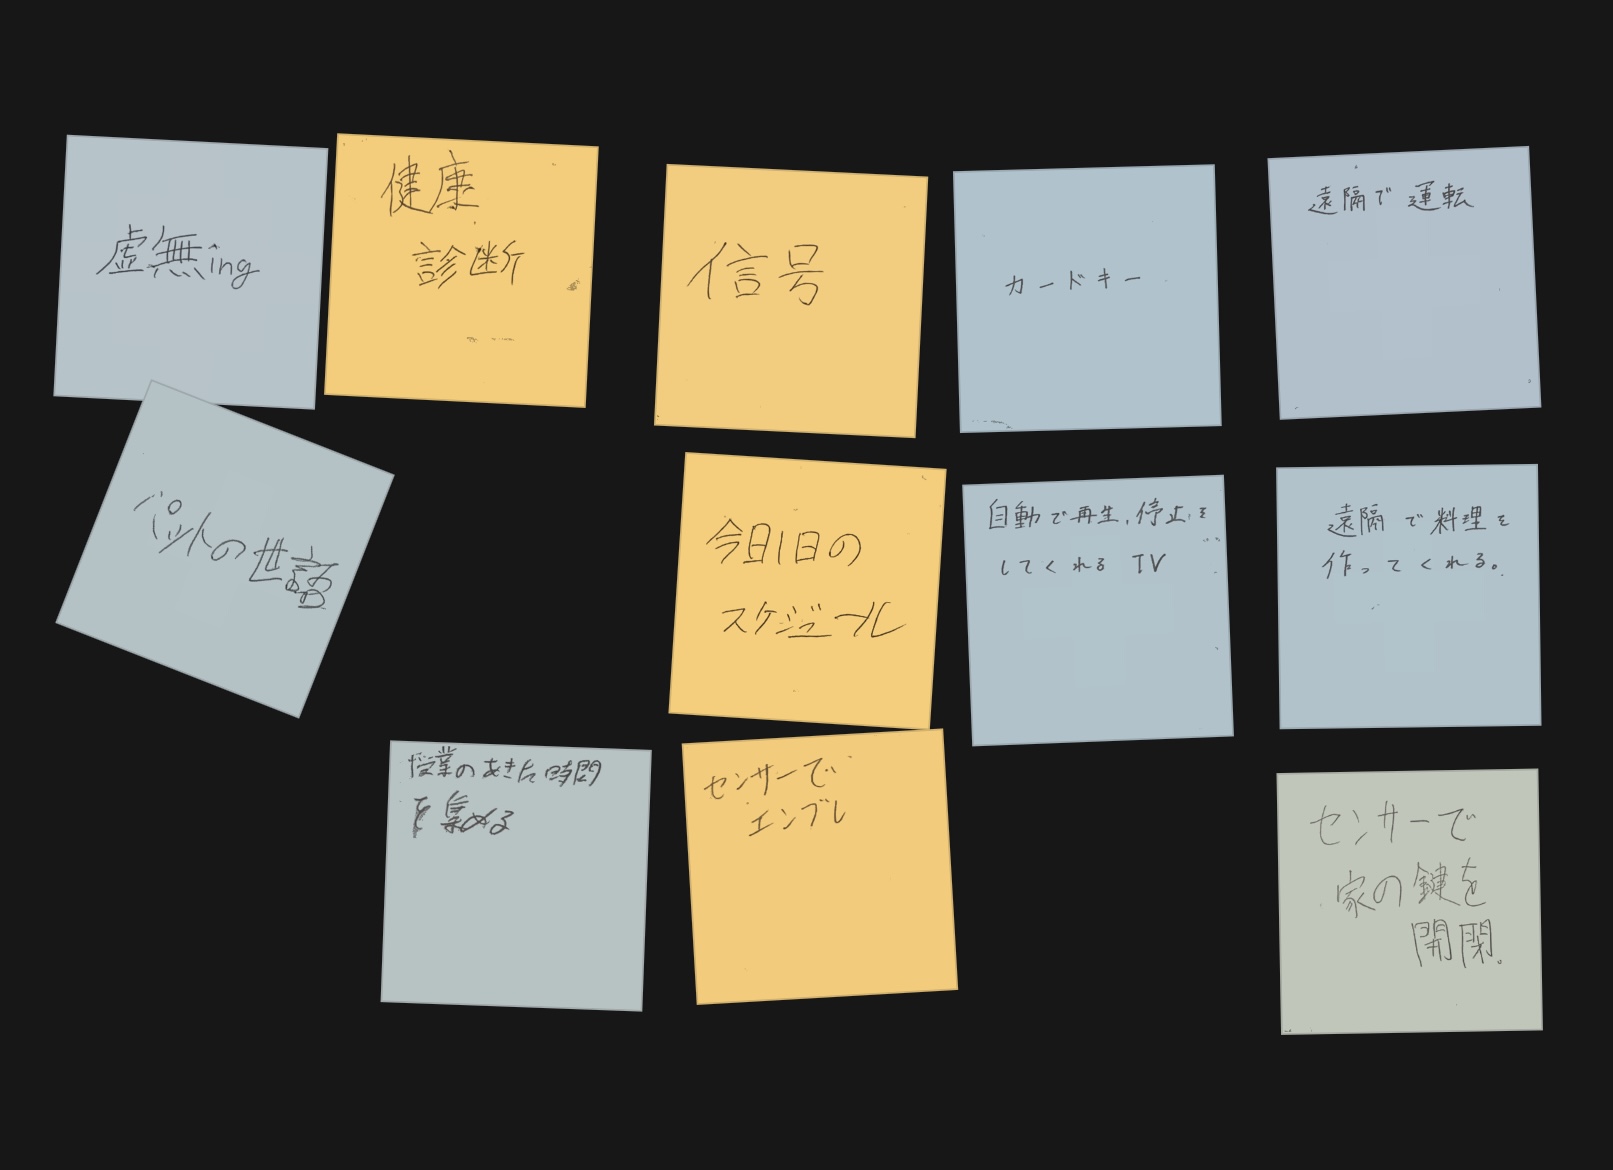 虚無ing
健康
診断
信号
カードキー
遠隔で運転
ペットの世話
今日1日の
スケジュール
自動で再生、停止を
してくれる TV
遠隔で料理を
作ってくれる。
授業のあきた時間
を集める
センサーで
エンブレ
センサーで
家の鍵を
開閉。